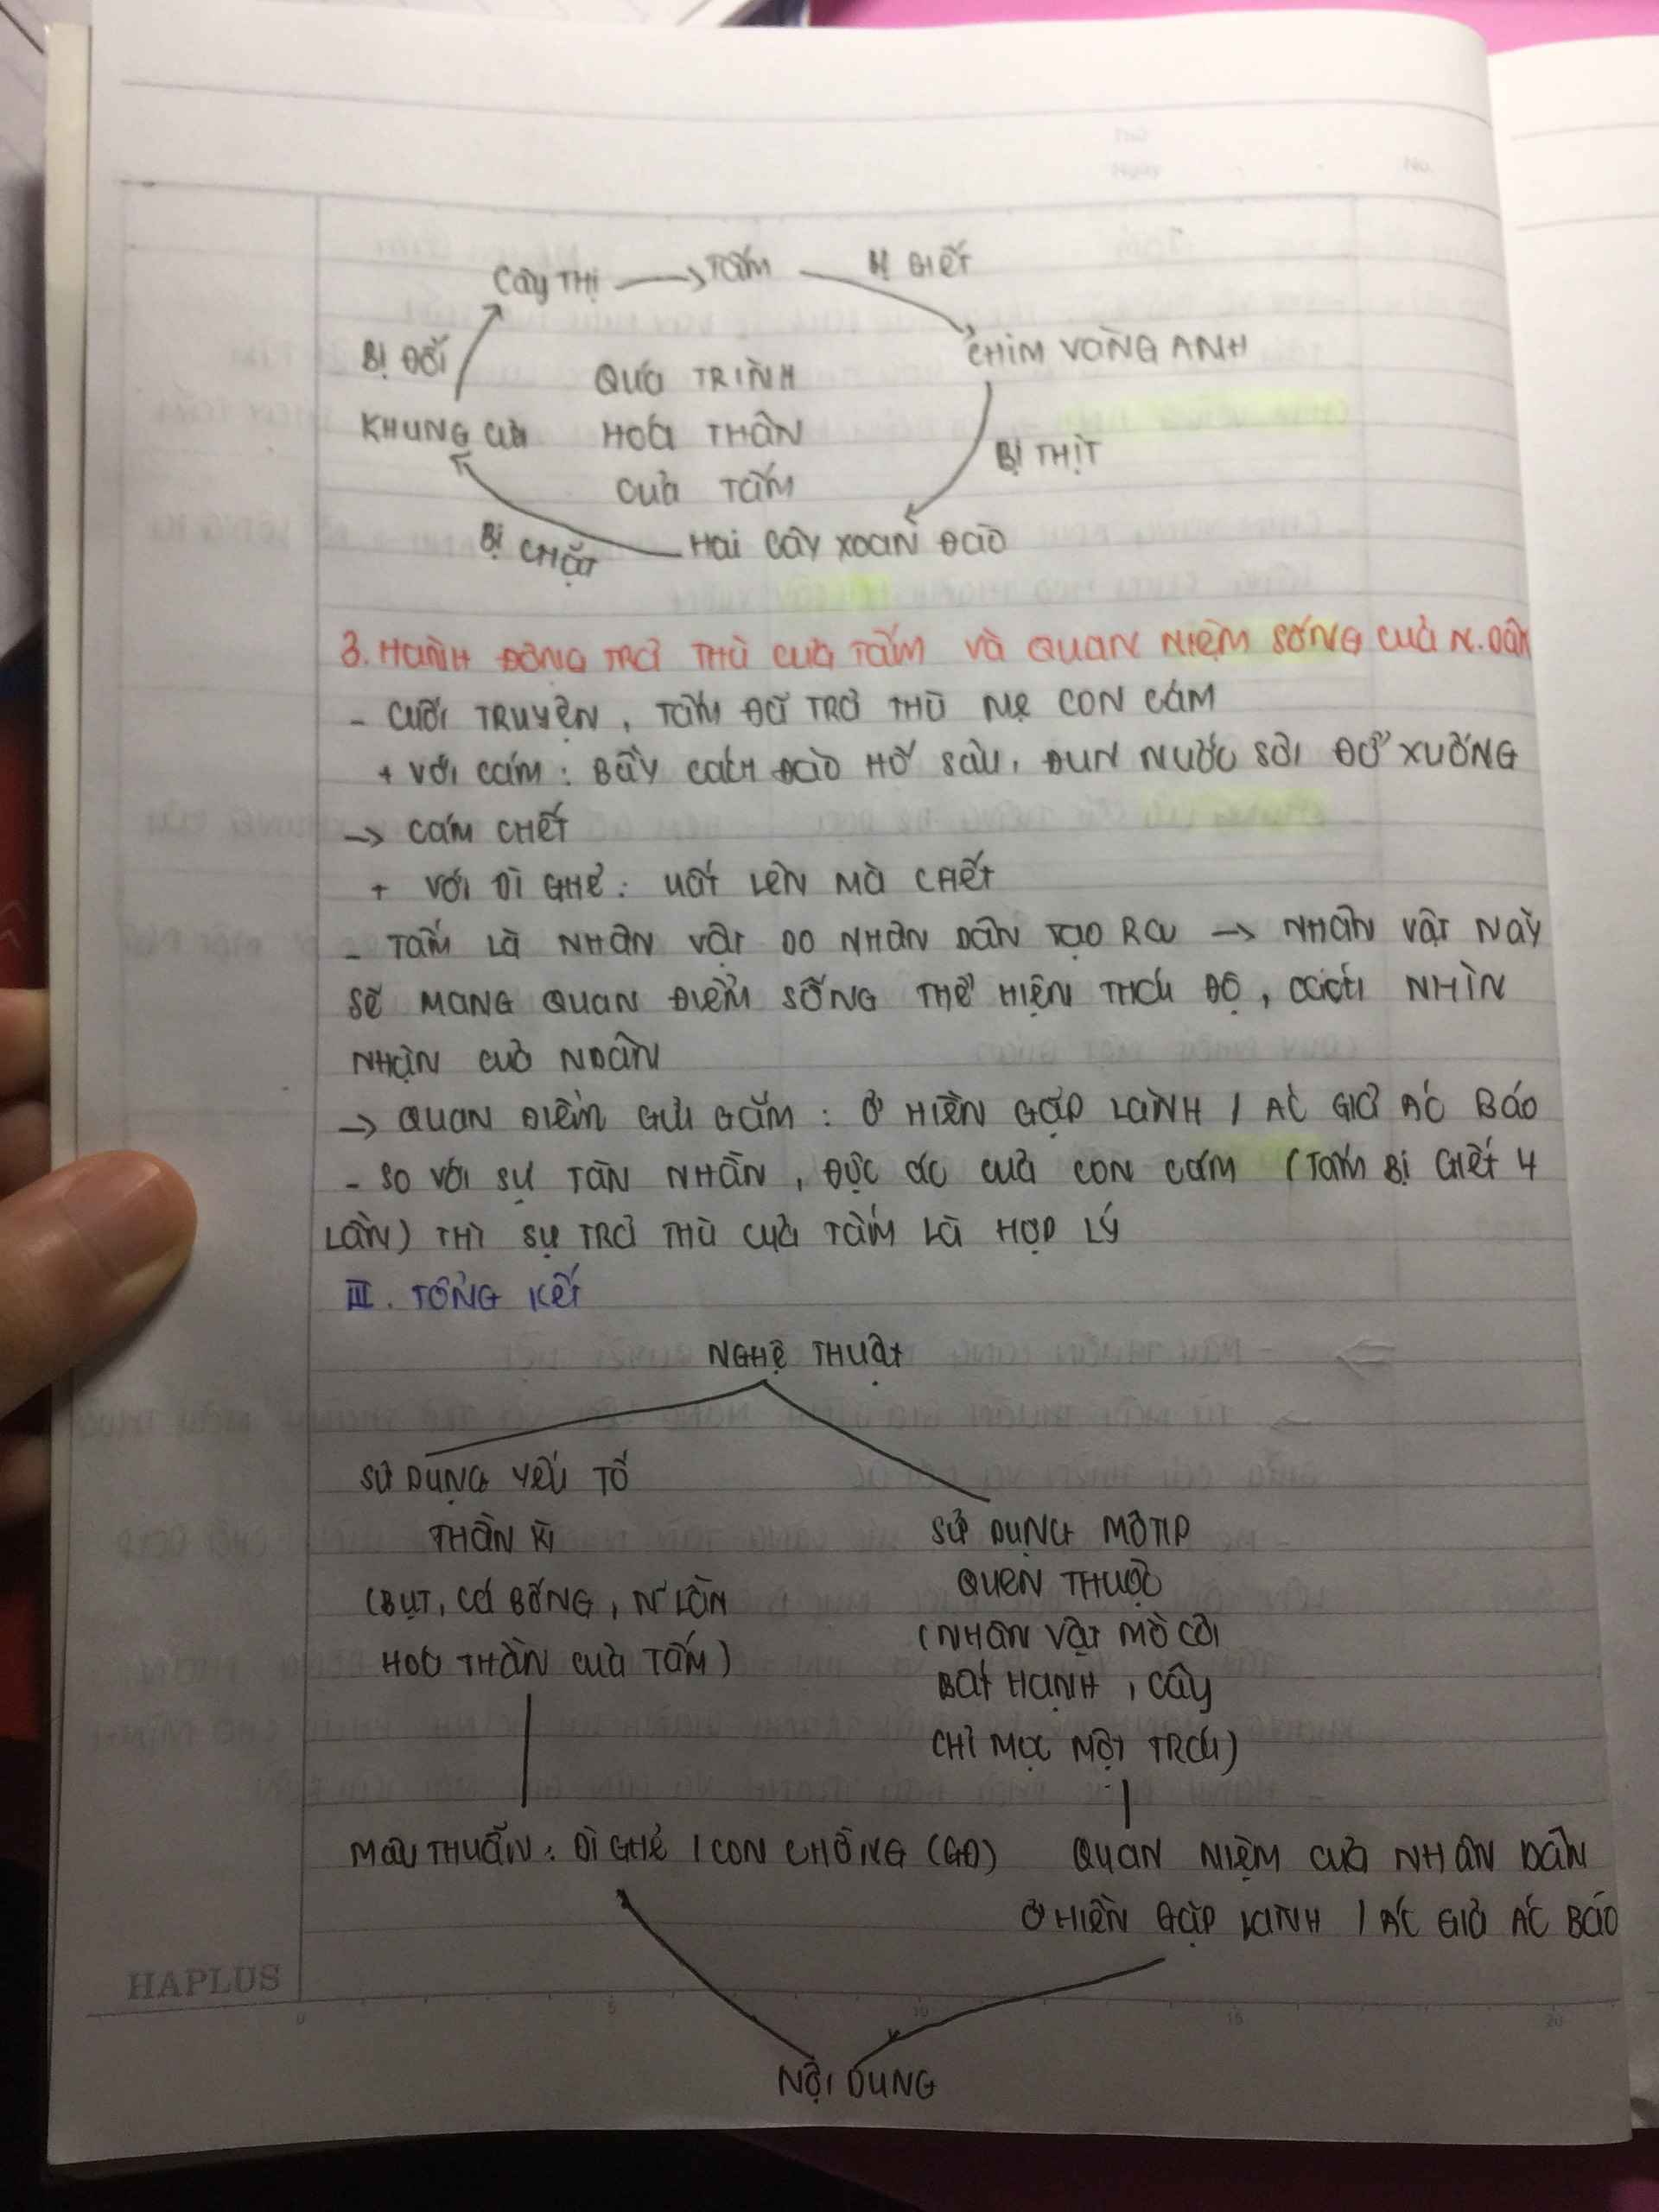 CÂY THỊ → TẤM BỊ GIẾT
CHIM VÀNG ANH
BỊ ĐỐT QUÁ TRÌNH
KHUNG CỬI HOÁ THÂN BỊ THỊT
CỦA TẤM
BỊ CHẶT HAI CÂY XOAN ĐÀO
3. HÀNH ĐỘNG TRẢ THÙ CỦA TẤM VÀ QUAN NIỆM SỐNG CỦA N.DÂN
- CUỐI TRUYỆN, TẤM ĐÃ TRẢ THÙ MẸ CON CÁM
+ VỚI CÁM: BẦY CÁCH ĐÀO HỐ SÂU, ĐUN NƯỚC SÔI ĐỔ XUỐNG
→ CÁM CHẾT
+ VỚI DÌ GHẺ: UẤT LÊN MÀ CHẾT
- TẤM LÀ NHÂN VẬT DO NHÂN DÂN TẠO RA → NHÂN VẬT NÀY
SẼ MANG QUAN ĐIỂM SỐNG THỂ HIỆN THÁI ĐỘ, CÁCH NHÌN
NHẬN CỦA NDÂN
→ QUAN ĐIỂM GỬI GẮM: Ở HIỀN GẶP LÀNH / ÁC GIẢ ÁC BÁO
- SO VỚI SỰ TÀN NHẪN, ĐỘC ÁC CỦA CON CÁM (TẤM BỊ GIẾT 4
LẦN) THÌ SỰ TRẢ THÙ CỦA TẤM LÀ HỢP LÝ
III. TỔNG KẾT
NGHỆ THUẬT
SỬ DỤNG YẾU TỐ
THẦN KÌ
(BỤT, CÁ BỐNG, N~ LẦN
HOÁ THÂN CỦA TẤM)
SỬ DỤNG MÔTIP
QUEN THUỘC
(NHÂN VẬT MỒ CÔI
BẤT HẠNH, CÂY
CHỈ MỌC MỘT TRÁI)
MÂU THUẪN: DÌ GHẺ / CON CHỒNG (GĐ)
QUAN NIỆM CỦA NHÂN DÂN
Ở HIỀN GẶP LÀNH / ÁC GIẢ ÁC BÁO
HAPLUS
0 5 10 15 20
NỘI DUNG